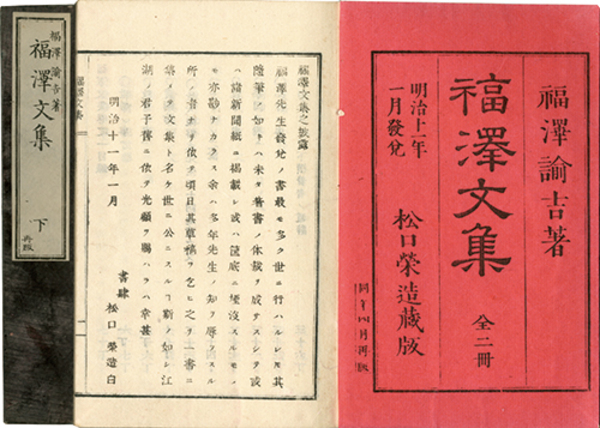 福澤諭吉著
福澤文集 全二冊
明治十一年
一月發兌
松口榮造藏版
同年四月再版
福澤文集之
福澤先生發兌ノ書最モ多ク世ニ行ハルレ𪜈其
隨筆ノ如キハ未タ著書ノ体裁ヲ成サスシテ或
ハ諸新聞紙ニ揭載シ或ハ篋底ニ埋沒スルモノ
モ亦尠ナカラス余ハ多年先生ノ知ヲ辱フスル
所ノ者ナリ依テ頃日其草稿ヲ乞ヒ之ヲ一書ニ
集メテ文集ト名ケ世ニ公ニスルヿ斯ノ如シ江
湖ノ君子舊ニ依テ光顧ヲ賜ハラハ幸甚
明治十一年一月
書肆 松口榮造白
福澤文集
一
福澤諭吉著
福澤文集 下
再版